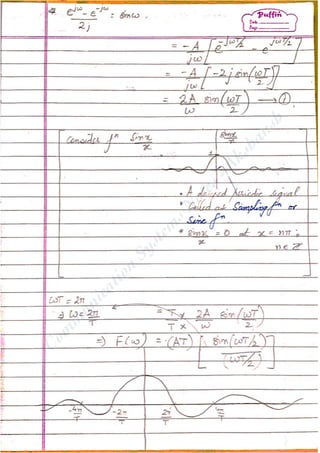 * e^{jω} - e^{-jω} / 2j = sin ω.
Puffin
Date
Page
= -A/jω [ e^{-jωT/2} - e^{jωT/2} ]
= -A/jω [ -2j sin(ωT/2) ]
= 2A/ω sin(ωT/2) → ①
Consider fⁿ sinx/x
sinx/x
1
• A decayed periodic signal
• Called as Sampling fⁿ or
Sinc fⁿ
* sinx/x = 0 at x = nπ ;
n∈Z
ωT = 2π
⇒ ω = 2π/T
= T/T × 2A/ω sin(ωT/2)
⇒ F(ω) = (AT) [ sin(ωT/2) / (ωT/2) ]
-4π/T -2π/T 2π/T 4π/T
Communication Systems